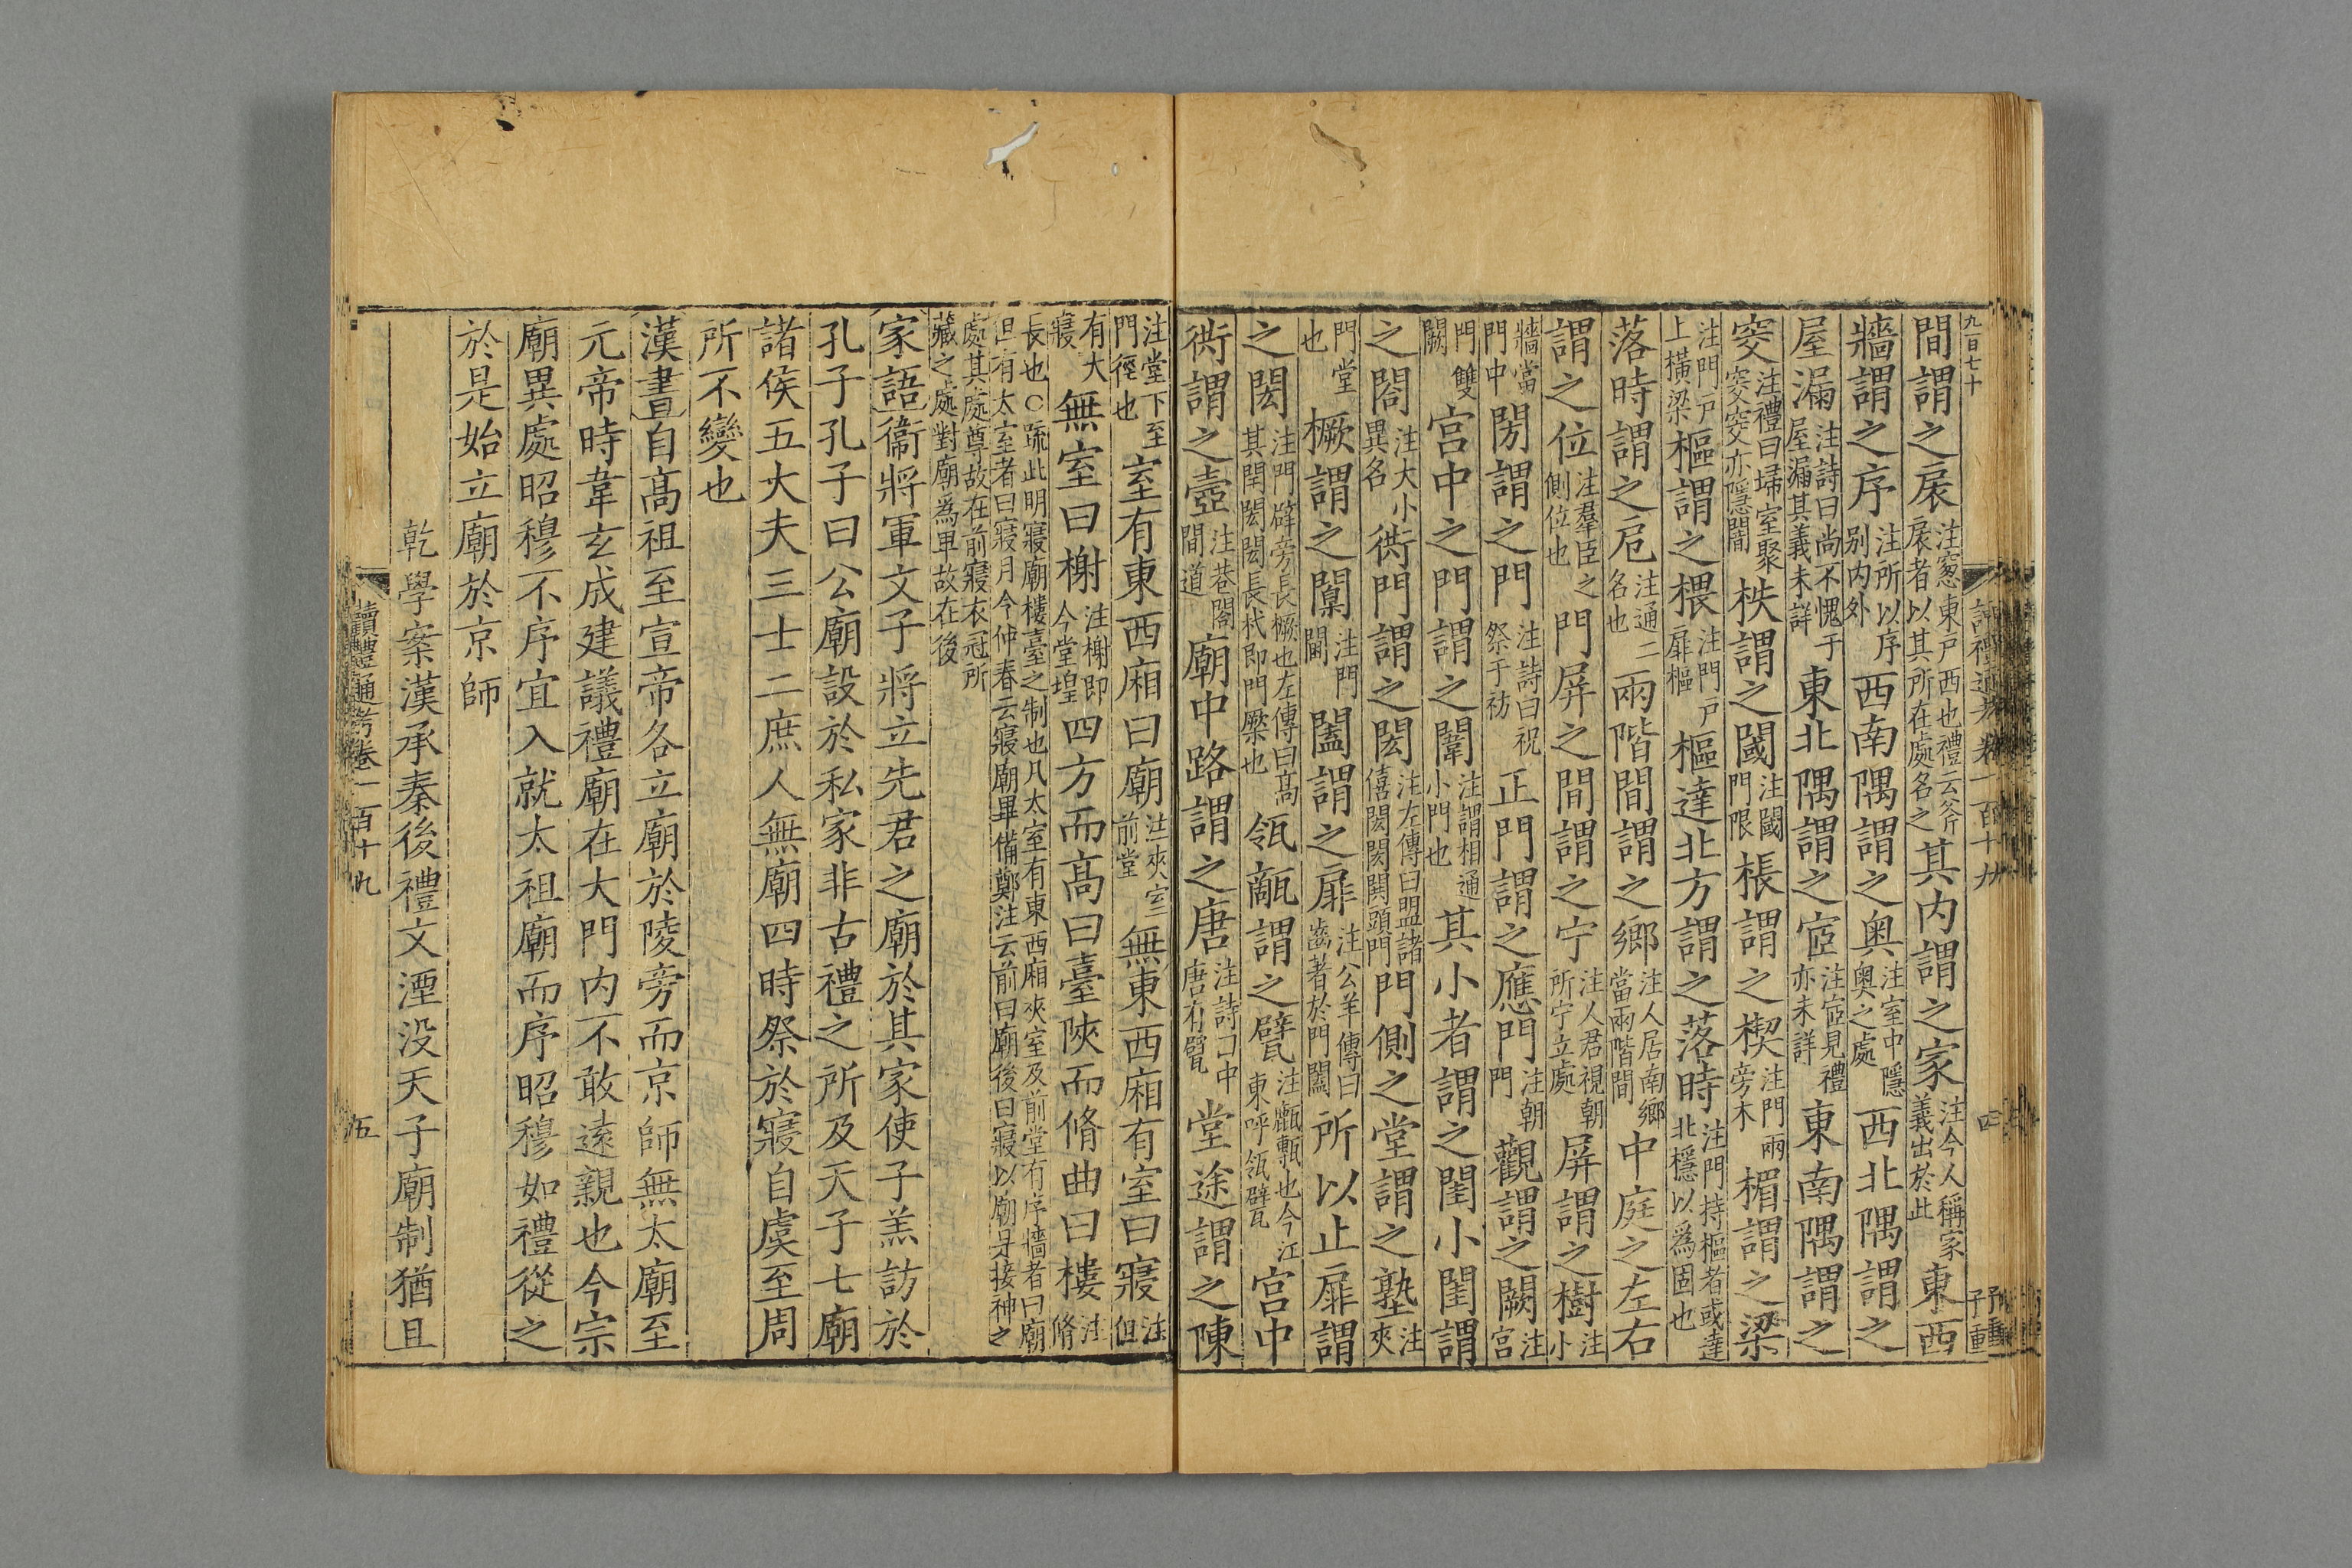 九百七十
間謂之扆注窓東戶西也禮云斧扆者以其所在處名之其内謂之家注今人稱家義出於此東西
牆謂之序注所以序别内外西南隅謂之奥注室中隱奥之處西北隅謂之
屋漏注詩曰尚不愧于屋漏其義未詳東北隅謂之宧注宧見禮亦未詳東南隅謂之
窔注禮曰埽室聚窔窔亦隱闇柣謂之閾注閾門限棖謂之楔注門兩旁木楣謂之梁
注門戶上橫梁樞謂之椳注門戶扉樞樞達北方謂之落時注門持樞者或達北穩以爲固也
落時謂之戹注通二名也兩階間謂之鄉注人居南鄉當兩階間中庭之左右
謂之位注羣臣之側位也門屏之間謂之宁注人君視朝所宁立處屏謂之樹注小
牆當門中閍謂之門注詩曰祝祭于祊正門謂之應門注朝門觀謂之闕注宮
門雙闕宮中之門謂之闈注謂相通小門也其小者謂之閨小閨謂
之閤注大小異名衖門謂之閎注左傳曰盟諸僖閎閎閈頭門門側之堂謂之塾注夾
門堂也橛謂之闑注門閫闔謂之扉注公羊傳曰齒著於門闔所以止扉謂
之閎注門辟旁長橛也左傳曰高其閈閎閎長杙即門橜也瓴甋謂之甓注甎也今江東呼瓴甓宮中
衖謂之壼注巷閤間道廟中路謂之唐注詩曰中唐有甓堂途謂之陳
注堂下至門徑也室有東西廂曰廟注夾室前堂無東西廂有室曰寢注但
有大寢無室曰榭注榭即今堂堭四方而高曰臺陜而脩曲曰樓注脩
長也○疏此明寢廟樓臺之制也凡太室有東西廂夾室及前堂有序牆者曰廟
但有太室者曰寢月令仲春云寢廟畢備鄭注云前曰廟後曰寢以廟是接神之
處其處尊故在前寢衣冠所
藏之處對廟爲卑故在後
家語衞將軍文子將立先君之廟於其家使子羔訪於
孔子孔子曰公廟設於私家非古禮之所及天子七廟
諸侯五大夫三士二庶人無廟四時祭於寢自虞至周
所不變也
漢書自高祖至宣帝各立廟於陵旁而京師無太廟至
元帝時韋玄成建議禮廟在大門内不敢逺親也今宗
廟異處昭穆不序宜入就太祖廟而序昭穆如禮從之
於是始立廟於京師
乾學案漢承秦後禮文湮没天子廟制猶且
讀禮通考卷一百十九
五